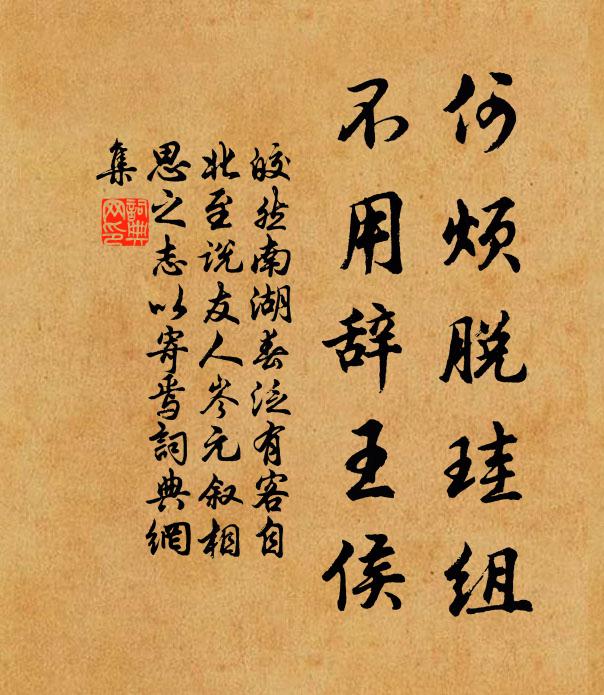 何烦脱珪组
不用辞王侯
皎然南湖春泛有客自
北至说友人岑元叙相
思之志以寄焉詞典網
集
詞典
网印